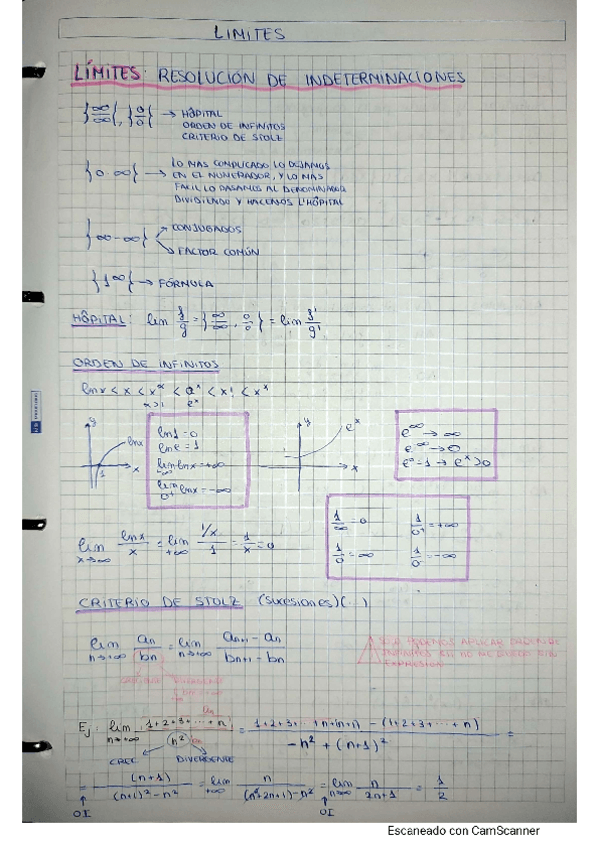 LIMITES
LÍMITES: RESOLUCIÓN DE INDETERMINACIONES
}∞/∞{, }0/0{ → HÔPITAL
ORDEN DE INFINITOS
CRITERIO DE STOLZ
}0·∞{ → LO MAS COMPLICADO LO DEJAMOS
EN EL NUMERADOR, Y LO MAS
FACIL LO PASAMOS AL DENOMINADOR
DIVIDIENDO Y HACEMOS L'HÔPITAL
}∞-∞{ → CONJUGADOS
→ FACTOR COMÚN
}1^∞{ → FÓRMULA
HÔPITAL: lim f/g = }∞/∞, 0/0{ = lim f'/g'
ORDEN DE INFINITOS
lnx < x < x^α < a^x < x! < x^x
α>1 e^x
y
lnx
1
x
ln1=0
lne=1
lim lnx=+∞
lim 0+ lnx=-∞
y
e^x
1
x
e^∞ → ∞
e^-∞ → 0
e^0=1 → e^x>0
lim x→∞ lnx/x = lim +∞ 1/x/1 = 1/x = 0
1/∞=0 1/0+=+∞
1/0=∞ 1/0-=-∞
CRITERIO DE STOLZ (sucesiones)(...)
lim n→+∞ an/bn = lim n→+∞ an+1-an/bn+1-bn
SOLO PODEMOS APLICAR ORDEN DE
INFINITOS
EXPRESIÓN
CRECIENTE
an
Ej: lim n→+∞ 1+2+3+...+n/(n²) = 1+2+3+...+n+(n+1) - (1+2+3+...+n)/-n²+(n+1)² =
CREC DIVERGENTE
= (n+1)/(n+1)²-n² = lim +∞ n/(n²+2n+1)-n² = lim n→∞ n/2n+1 = 1/2
OI OI
Escaneado con CamScanner